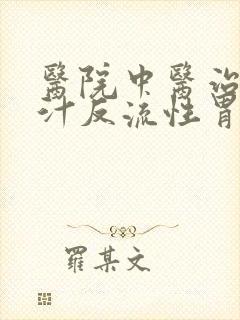 醫院中醫治
汁反流性胃
羅某文